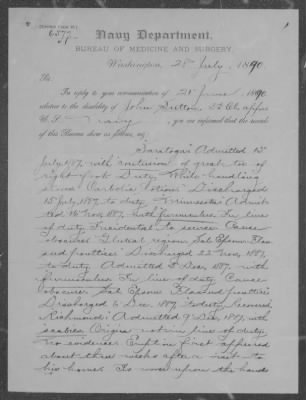 6577
Navy Department,
BUREAU OF MEDICINE AND SURGERY,
Washington, 28 July, 1890.
Sir:
In reply to your communication of 21 June 1890
relative to the disability of John Sutton,
U.S. Navy, you are informed that the records
of this Bureau show as follows, viz:
Saratoga: Admitted 12
July 1887, with contusion of great toe of
right foot. Duty. While handling
stores. Carbolic lotion. Discharged
15 July, 1887, to duty. Minnesota: Admit-
ted 16 Nov, 1887, with furunculus. In line
of duty. Incidental to service. Cause
obscure. Gluteal region. Sal Epsom. Flax-
seed poultices. Discharged 22 Nov, 1887,
to duty. Admitted 2 Dec, 1887, with
furunculus. In line of duty. Cause
obscure. Sal Epsom. Flaxseed poultices.
Discharged 6 Dec. 1887 to duty. Recovered.
Richmond: Admitted 9 Dec, 1887, with
scabies. Origin not in line of duty.
No evidence. Eruption first appeared
about three weeks after a visit to
his home. Is now upon the hands